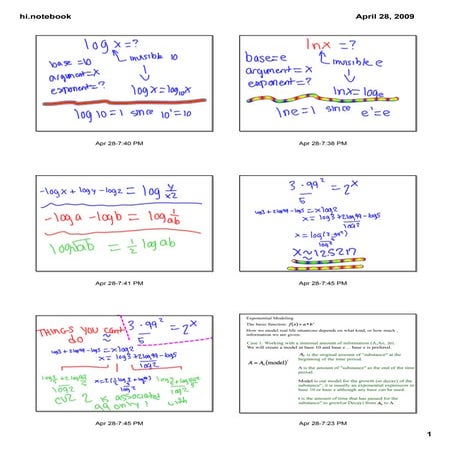 hi.notebook
April 28, 2009
log x = ?
base = 10
invisible 10
argument = x
exponent = ?
log x = log₁₀x
log 10 = 1 since 10¹ = 10
Apr 28-7:40 PM
ln x = ?
base = e
invisible e
argument = x
exponent = ?
ln x = log e
ln e = 1 since e¹ = e
Apr 28-7:38 PM
-log x + log y - log 2 = log y/x2
-log a - log b = log 1/ab
log √ab = 1/2 log ab
Apr 28-7:41 PM
3 · 99² / 5 = 2ˣ
log 3 + 2log 99 - log 5 = x log 2
x = log 3 + 2log 99 - log 5 / log 2
x = log(3·99²/5) / log 2
Apr 28-7:45 PM
THINGS YOU can't
do
3 · 99² / 5 = 2ˣ
log 3 + 2log 99 - log 5 = x log 2
x = log 3 + 2log 99 - log 5 / log 2
is associated
with
Apr 28-7:45 PM
Exponential Modeling
The basic function: f(x) = a • bˣ
How we model real life situations depends on what kind, or how much,
information we are given.
Case 1: Working with a minimal amount of information
We will create a model in base 10 and base e ... base e is preferred.
A = A₀(model)ᵗ
A₀ is the original amount of "substance" at the
beginning of the time period.
A is the amount of "substance" at the end of the time
period.
Model is our model for the growth (or decay) of the
"substance"; it is usually an exponential expression in
base 10 or base e although any base can be used.
t is the amount of time that has passed for the
"substance" to grow(or Decay) from A₀ to A.
Apr 28-7:23 PM
1